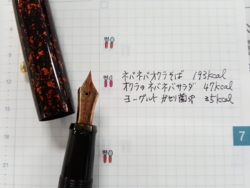 ネバネバオクラそば 193kcal
オクラのネバネバサラダ 47kcal
ヨーグルト 35kcal
7